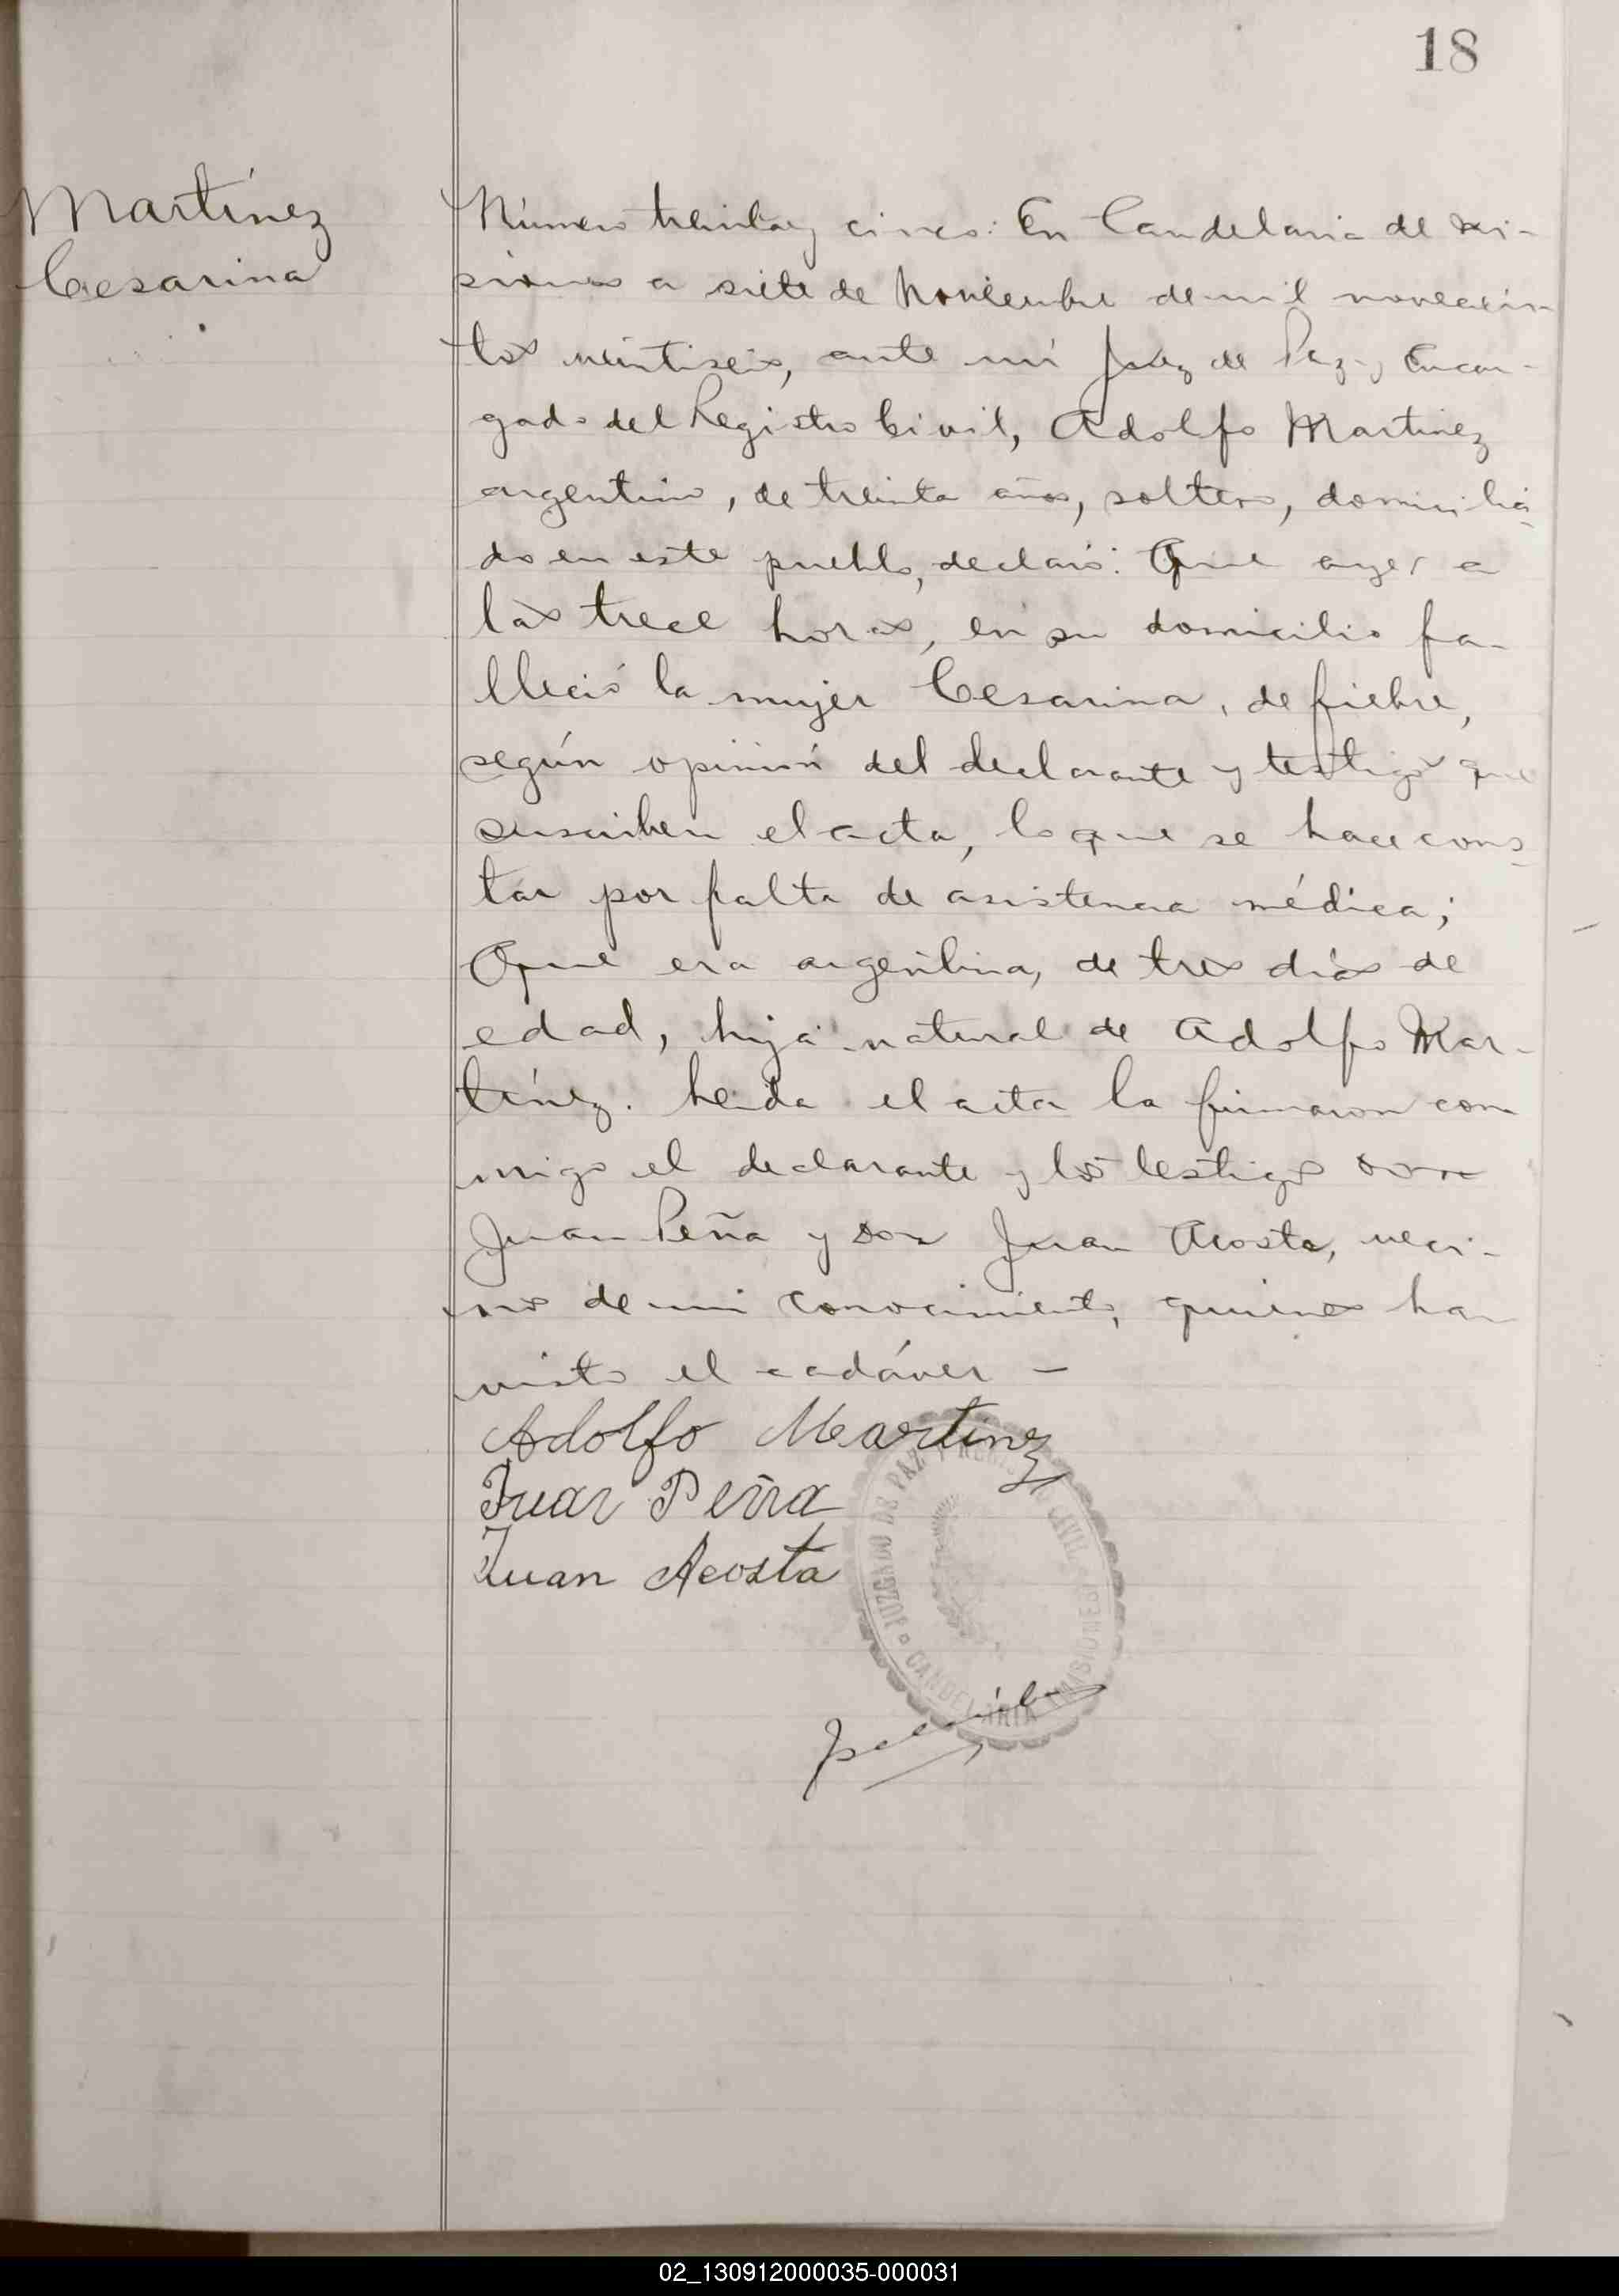 18
Martínez
Cesarina
Número treinta y cinco: En Candelaria de Mi-
siones a siete de Noviembre de mil novecien-
tos veintiseis, ante mí Juez de Paz y Encar-
gado del Registro Civil, Adolfo Martinez
argentino, de treinta años, soltero, domicilia-
do en este pueblo, declaró: Que ayer a
las trece horas, en su domicilio fa-
lleció la mujer Cesarina, de fiebre,
según opinión del declarante y testigos que
suscriben el acta, lo que se hace cons-
tar por falta de asistencia médica;
Que era argentina, de tres días de
edad, hija natural de Adolfo Mar-
tínez. Leida el acta la firmaron con
migo el declarante y los testigos Don
Juan Peña y Don Juan Acosta, veci-
nos de mi conocimiento, quienes han
visto el cadáver —
Adolfo Martínez
Juan Peña
Juan Acosta
JUZGADO DE PAZ Y REGISTRO CIVIL
CANDELARIA (MISIONES)
02_130912000035-000031